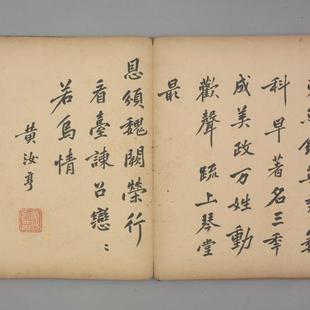 科早著名三秊
成美政万姓動
歡聲疏上琴堂
最
恩頒魏闕榮行
看臺諫召戀〻
若為情
黃汝亨